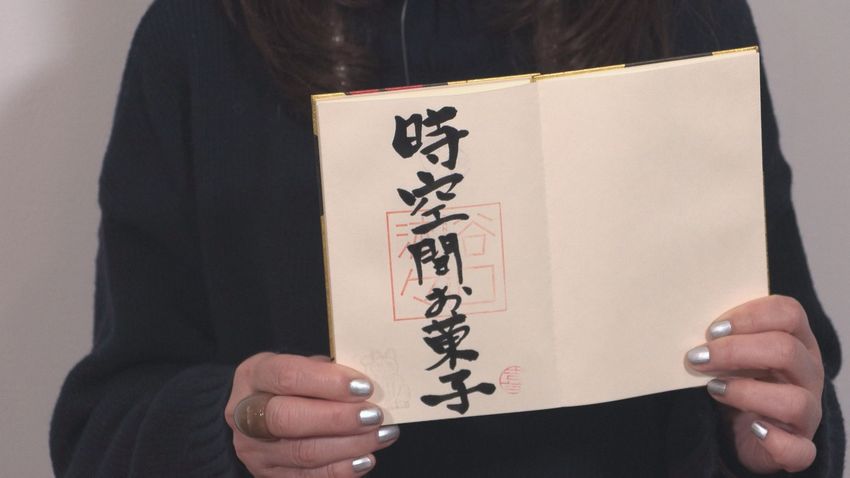 時空間お菓子